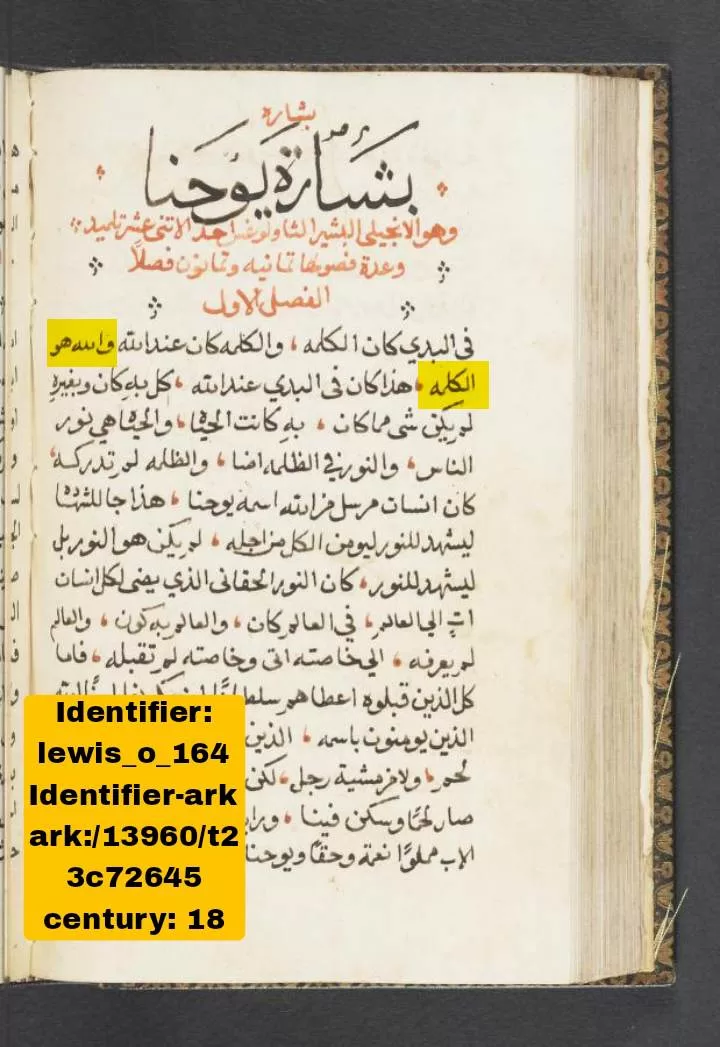 بشاره
بشارة يوحنا
وهو الانجيلي البشير الثاولوغس احد الاثنى عشر تلميد
وعدة فصولها تمانيه وتمانون فصلاً
الفصل الاول
فى البدي كان الكلمه ، والكلمه كان عند الله والله هو
الكلمه ، هذا كان فى البدي عند الله ، كل به كان وبغيره
لم يكن شى مما كان ، به كانت الحياة ، والحياة هي نور
الناس ، والنور في الظلمه اضا ، والظلمه لم تدركه ،
كان انسان مرسل من الله اسمه يوحنا ، هذا جا للشهادة
ليشهد للنور ليومن الكل من اجله ، لم يكن هو النور بل
ليشهد للنور ، كان النور الحقانى الذي يضى لكل انسان
اتٍ الي العالم ، في العالم كان ، والعالم به كون ، والعالم
لم يعرفه ، الي خاصته اتى وخاصته لم تقبله ، فاما
كل الذين قبلوه اعطاهم
الذين يومنون باسمه ، الذين
لحم ، ولا من مشية رجل ، لكن
صار لحمًا وسكن فينا ، وراينا
الاب مملوًا نعمة وحقًا ويوحنا
Identifier:
lewis_o_164
Identifier-ark
ark:/13960/t2
3c72645
century: 18